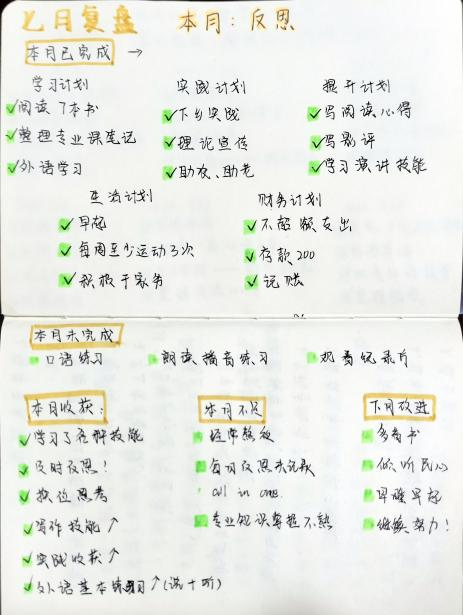 七月复盘 本月：反思
本月已完成 →
学习计划 实践计划 提升计划
✓阅读7本书 ✓下乡实践 ✓写阅读心得
✓整理专业课笔记 ✓理论宣传 ✓写影评
✓外语学习 ✓助农、助老 ✓学习演讲技能
生活计划 财务计划
✓早起 ✓不超额支出
✓每周至少运动3次 ✓存款200
✓积极干家务 ✓记账
本月未完成
口语练习 朗读播音练习 观看纪录片
本月收获： 本月不足 下月改进
✓学习了各种技能 经常熬夜 多看书
✓及时反思！ 每日反思未记录 倾听民心
✓换位思考 all in one. 早睡早起
✓写作技能↑ 专业知识掌握不熟 继续努力！
✓实践收获↑
✓外语基本练习↑(读+听)